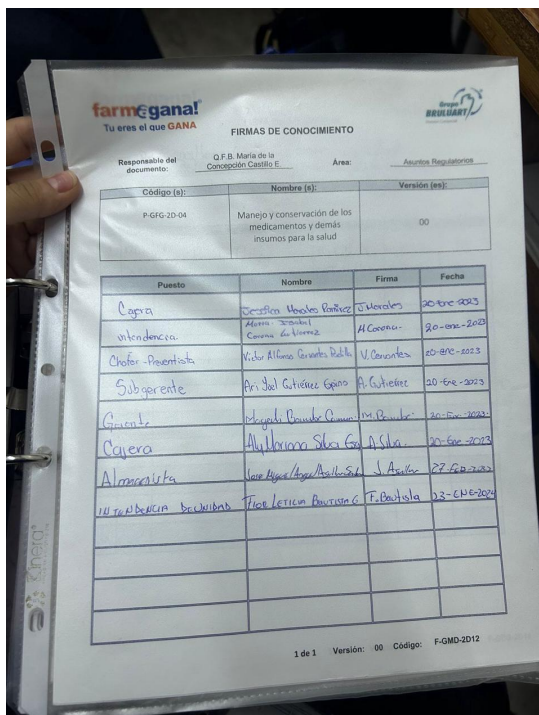 farm€gana!
Tu eres el que GANA
Grupo
BRULUART
FIRMAS DE CONOCIMIENTO
Responsable del documento: Q.F.B. María de la Concepción Castillo E. Área: Asuntos Regulatorios
Código (s): Nombre (s): Versión (es):
P-GFG-2D-04 Manejo y conservación de los medicamentos y demás insumos para la salud 00
Puesto Nombre Firma Fecha
Cajera Jessica Morales Ramirez J. Morales 20-Ene-2023
intendencia Maria Isabel Corona Gutierrez M Corona. 20-ene-2023
Chofer-Preventista Victor Alfonso Cervantes V. Cervantes 20-ene-2023
Subgerente Ari Yael Gutiérrez A. Gutierrez 20-Ene-2023
Gerente 20-Ene-2023
Cajera Mariana Silva A Silva. 20-Ene-2023
Almacenista Jose Miguel 27-Feb
INTENDENCIA DE UNIDAD FLOR LETICIA BAUTISTA G F. Bautista 23-ENE-2024
1 de 1 Versión: 00 Código: F-GMD-2D12
Kinera